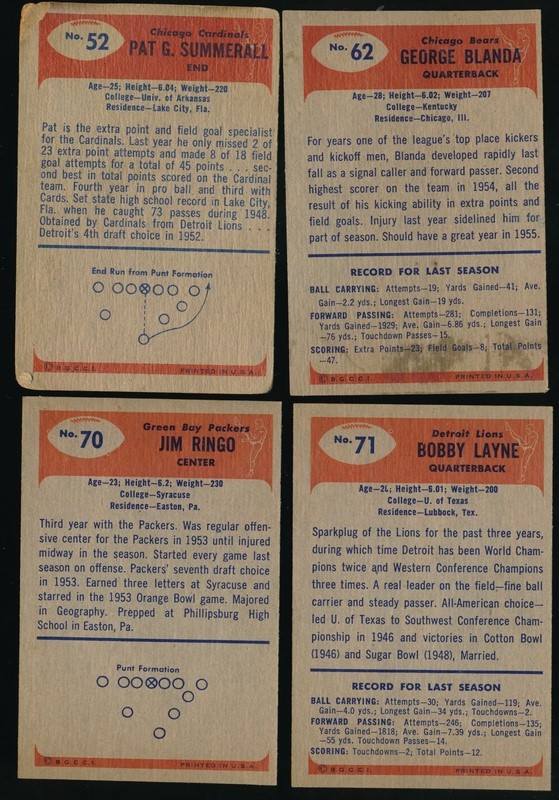 No. 52
Chicago Cardinals
PAT G. SUMMERALL
END
Age—25; Height—6.04; Weight—220
College—Univ. of Arkansas
Residence—Lake City, Fla.
Pat is the extra point and field goal specialist
for the Cardinals. Last year he only missed 2 of
23 extra point attempts and made 8 of 18 field
goal attempts for a total of 45 points . . . sec-
ond best in total points scored on the Cardinal
team. Fourth year in pro ball and third with
Cards. Set state high school record in Lake City,
Fla. when he caught 73 passes during 1948.
Obtained by Cardinals from Detroit Lions . . .
Detroit's 4th draft choice in 1952.
End Run from Punt Formation
© B.G.C.C.I. PRINTED IN U.S.A.
No. 62
Chicago Bears
GEORGE BLANDA
QUARTERBACK
Age—28; Height—6.02; Weight—207
College—Kentucky
Residence—Chicago, Ill.
For years one of the league's top place kickers
and kickoff men, Blanda developed rapidly last
fall as a signal caller and forward passer. Second
highest scorer on the team in 1954, all the
result of his kicking ability in extra points and
field goals. Injury last year sidelined him for
part of season. Should have a great year in 1955.
RECORD FOR LAST SEASON
BALL CARRYING: Attempts—19; Yards Gained—41; Ave.
Gain—2.2 yds.; Longest Gain—19 yds.
FORWARD PASSING: Attempts—281; Completions—131;
Yards Gained—1929; Ave. Gain—6.86 yds.; Longest Gain
—76 yds.; Touchdown Passes—15.
SCORING: Extra Points—23; Field Goals—8; Total Points
—47.
© B.G.C.C.I. PRINTED IN U.S.A.
No. 70
Green Bay Packers
JIM RINGO
CENTER
Age—23; Height—6.2; Weight—230
College—Syracuse
Residence—Easton, Pa.
Third year with the Packers. Was regular offen-
sive center for the Packers in 1953 until injured
midway in the season. Started every game last
season on offense. Packers' seventh draft choice
in 1953. Earned three letters at Syracuse and
starred in the 1953 Orange Bowl game. Majored
in Geography. Prepped at Phillipsburg High
School in Easton, Pa.
Punt Formation
© B.G.C.C.I. PRINTED IN U.S.A.
No. 71
Detroit Lions
BOBBY LAYNE
QUARTERBACK
Height—6.01; Weight—200
College—U. of Texas
Residence—Lubbock, Tex.
Sparkplug of the Lions for the past three years,
during which time Detroit has been World Cham-
pions twice and Western Conference Champions
three times. A real leader on the field—fine ball
carrier and steady passer. All-American choice—
led U. of Texas to Southwest Conference Cham-
pionship in 1946 and victories in Cotton Bowl
(1946) and Sugar Bowl (1948), Married.
RECORD FOR LAST SEASON
BALL CARRYING: Attempts—30; Yards Gained—119; Ave.
Gain—4.0 yds.; Longest Gain—34 yds.; Touchdowns—2.
FORWARD PASSING: Attempts—246; Completions—135;
Yards Gained—1818; Ave. Gain—7.39 yds.; Longest Gain
—55 yds. Touchdown Passes—14.
SCORING: Touchdowns—2; Total Points—12.
© B.G.C.C.I. PRINTED IN U.S.A.